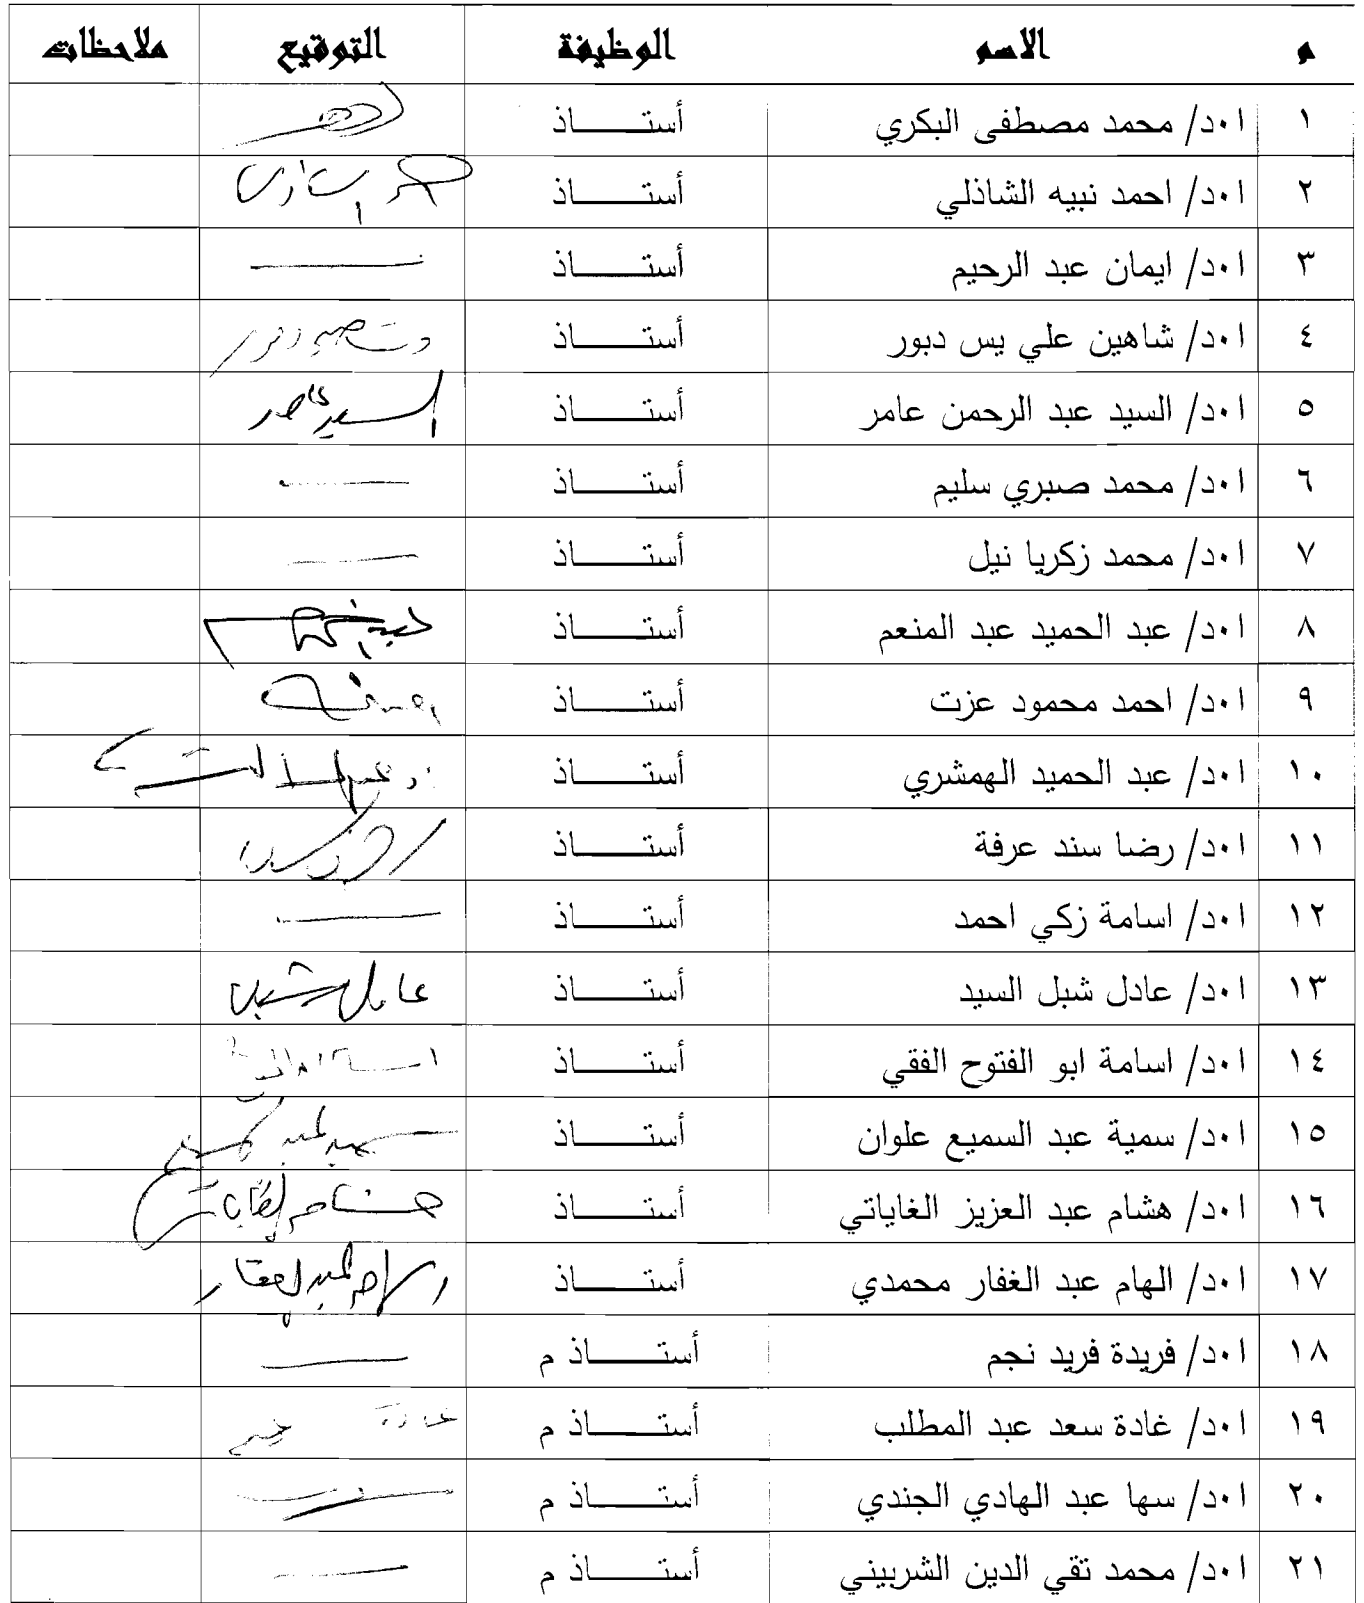 م الاسم الوظيفة التوقيع ملاحظات
١ ا٠د/ محمد مصطفى البكري أستــــاذ
٢ ا٠د/ احمد نبيه الشاذلي أستــــاذ
٣ ا٠د/ ايمان عبد الرحيم أستــــاذ
٤ ا٠د/ شاهين علي يس دبور أستــــاذ
٥ ا٠د/ السيد عبد الرحمن عامر أستــــاذ السيد عامر
٦ ا٠د/ محمد صبري سليم أستــــاذ
٧ ا٠د/ محمد زكريا نيل أستــــاذ
٨ ا٠د/ عبد الحميد عبد المنعم أستــــاذ
٩ ا٠د/ احمد محمود عزت أستــــاذ
١٠ ا٠د/ عبد الحميد الهمشري أستــــاذ
١١ ا٠د/ رضا سند عرفة أستــــاذ
١٢ ا٠د/ اسامة زكي احمد أستــــاذ
١٣ ا٠د/ عادل شبل السيد أستــــاذ عادل شبل
١٤ ا٠د/ اسامة ابو الفتوح الفقي أستــــاذ
١٥ ا٠د/ سمية عبد السميع علوان أستــــاذ
١٦ ا٠د/ هشام عبد العزيز الغاياتي أستــــاذ هشام الغاياتي
١٧ ا٠د/ الهام عبد الغفار محمدي أستــــاذ الهام عبد الغفار
١٨ ا٠د/ فريدة فريد نجم أستــــاذ م
١٩ ا٠د/ غادة سعد عبد المطلب أستــــاذ م
٢٠ ا٠د/ سها عبد الهادي الجندي أستــــاذ م
٢١ ا٠د/ محمد تقي الدين الشربيني أستــــاذ م